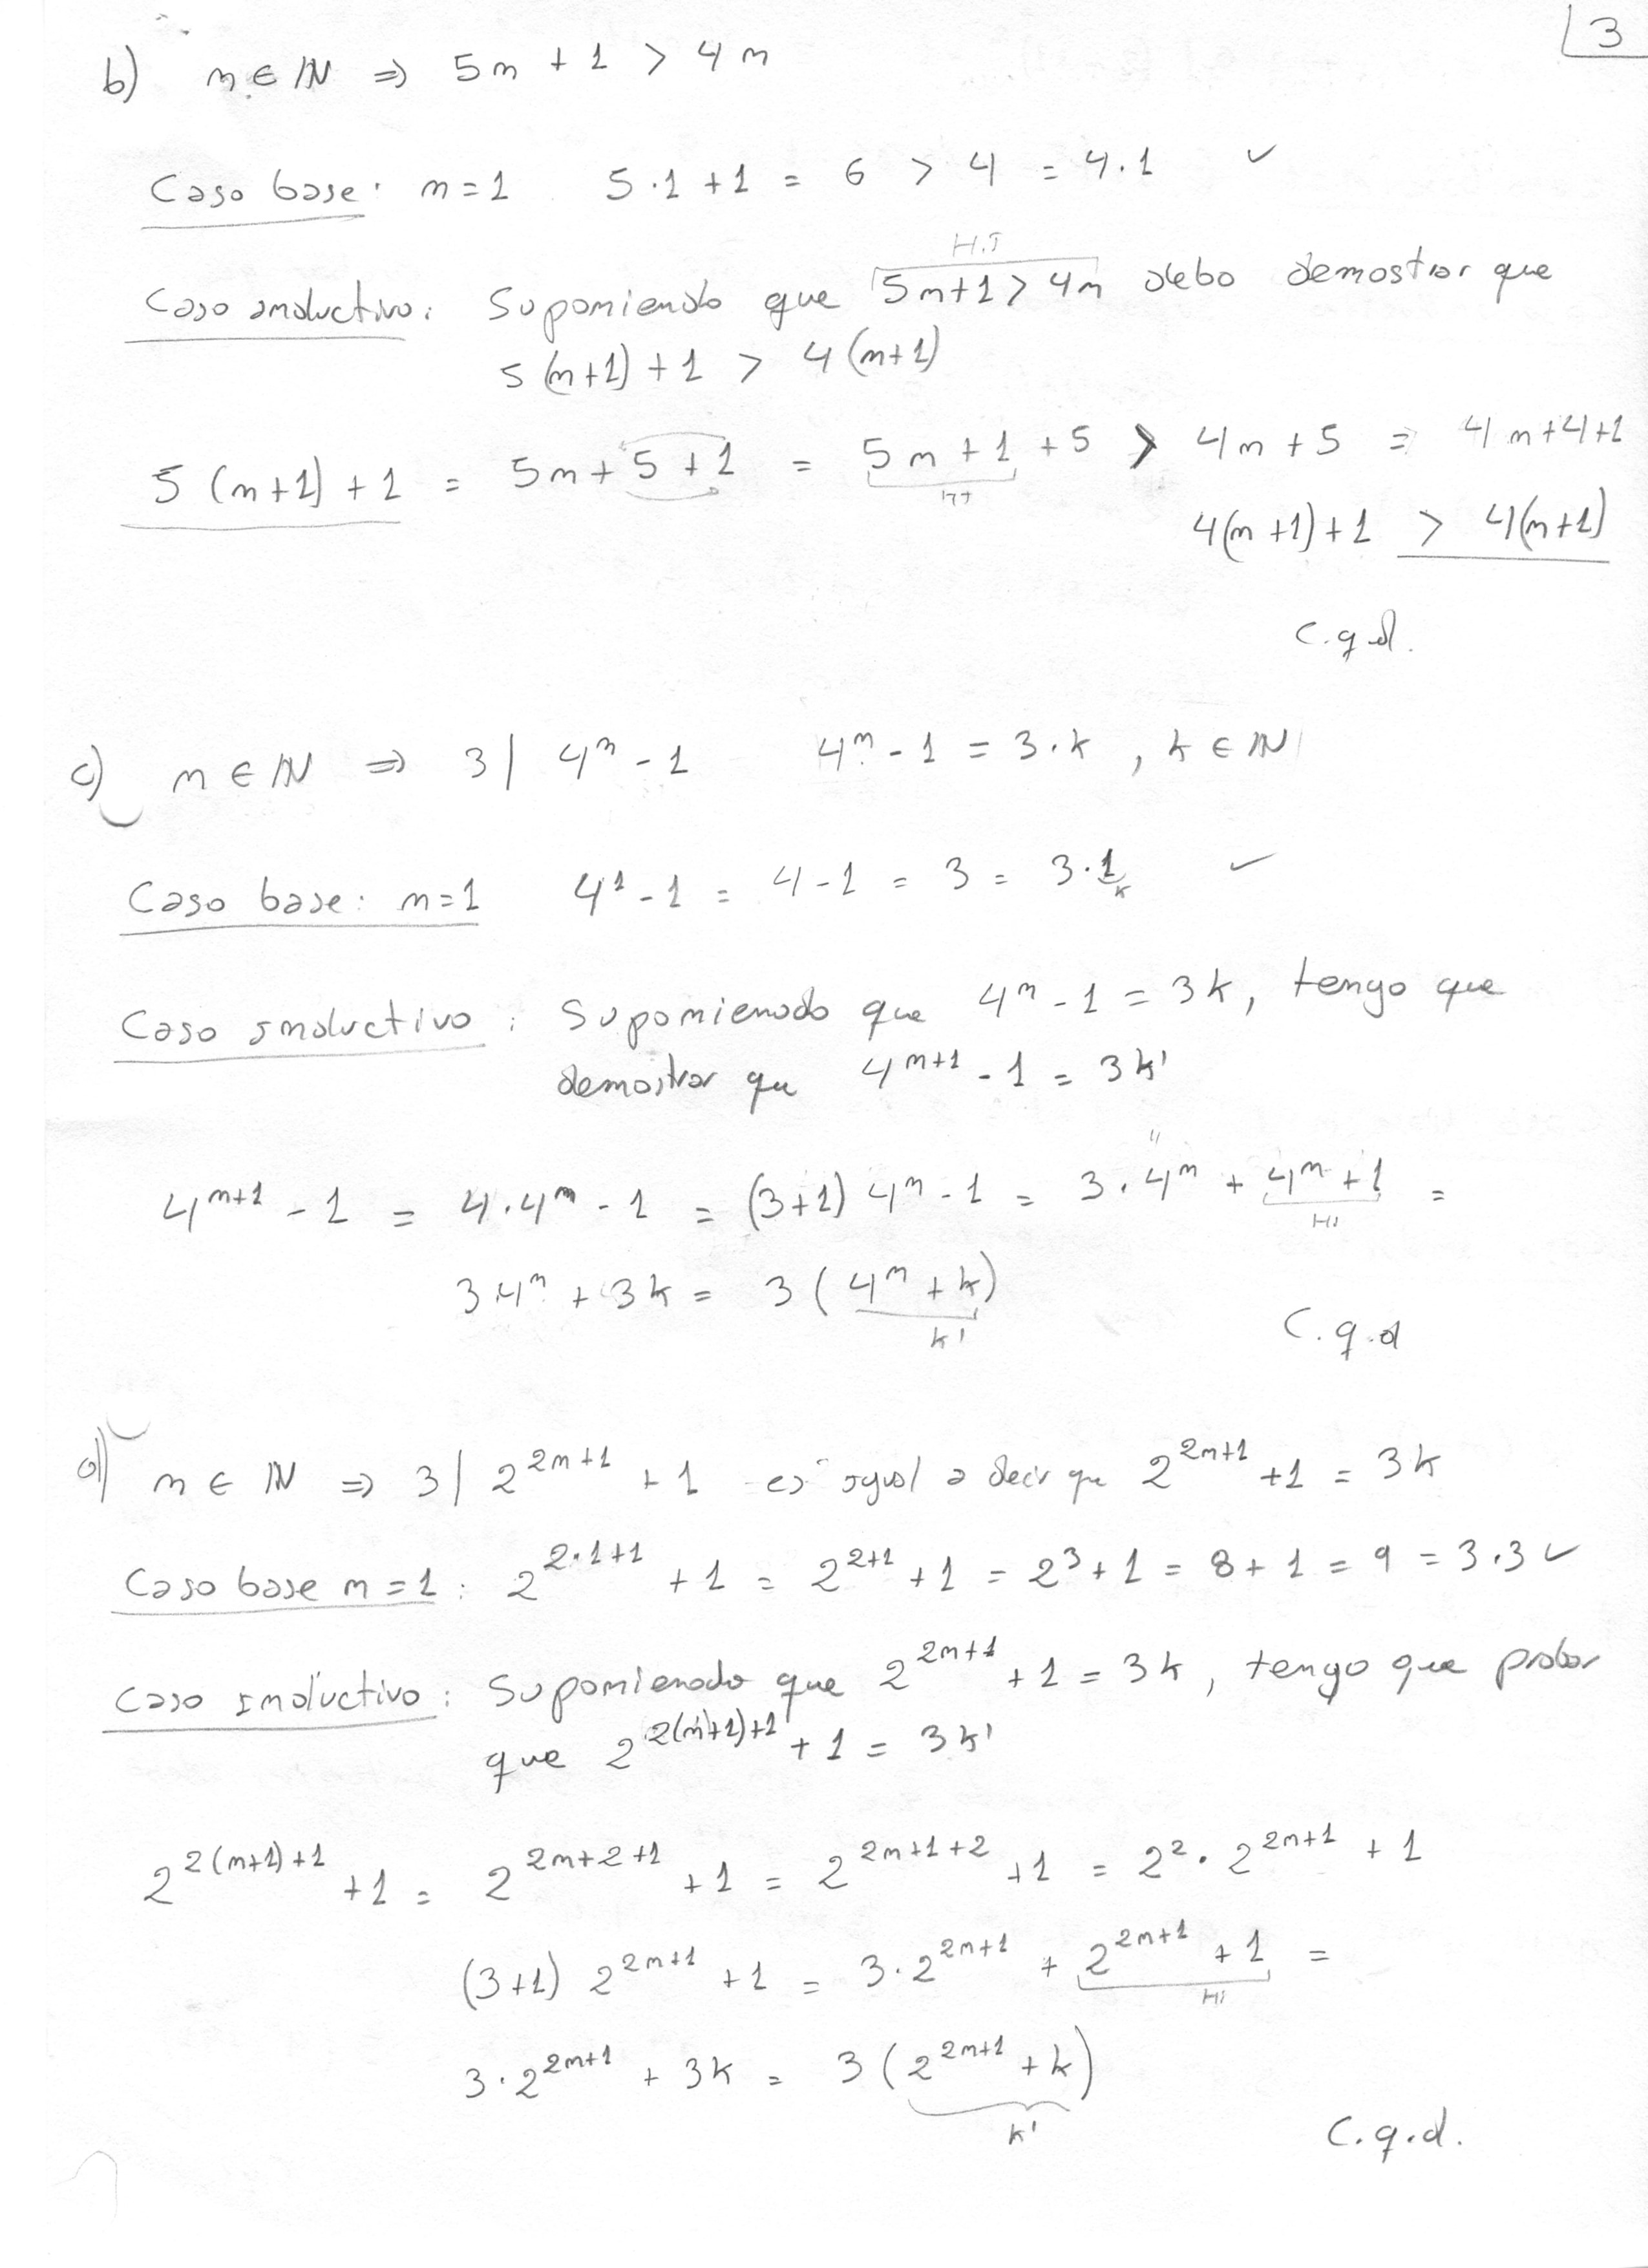 3
b) n ∈ ℕ ⇒ 5n + 1 > 4n
Caso base: n=1 5·1+1 = 6 > 4 = 4.1 ✓
H.I
Caso inductivo: Suponiendo que 5n+1 > 4n debo demostrar que
5(n+1)+1 > 4(n+1)
5(n+1)+1 = 5n+5+1 = 5n+1+5 > 4n+5 = 4n+4+1
HI
4(n+1)+1 > 4(n+1)
C.q.d.
c) n ∈ ℕ ⇒ 3 | 4ⁿ - 1 4ⁿ - 1 = 3.k , k ∈ ℕ
Caso base: n=1 4¹ - 1 = 4-1 = 3 = 3·1 ✓
k
Caso inductivo: Suponienodo que 4ⁿ - 1 = 3k, tengo que
demostrar que 4ⁿ⁺¹ - 1 = 3k'
4ⁿ⁺¹ - 1 = 4.4ⁿ - 1 = (3+1) 4ⁿ - 1 = 3.4ⁿ + 4ⁿ + 1 =
HI
3.4ⁿ + 3k = 3(4ⁿ + k)
k'
C.q.d
d) n ∈ ℕ ⇒ 3 | 2²ⁿ⁺¹ + 1 es igual a decir que 2²ⁿ⁺¹ + 1 = 3k
Caso base n=1: 2^(2·1+1) + 1 = 2²⁺¹ + 1 = 2³ + 1 = 8 + 1 = 9 = 3.3 ✓
Caso inductivo: Suponienodo que 2²ⁿ⁺¹ + 1 = 3k, tengo que probar
que 2²⁽ⁿ⁺¹⁾⁺¹ + 1 = 3k'
2²⁽ⁿ⁺¹⁾⁺¹ + 1 = 2²ⁿ⁺²⁺¹ + 1 = 2²ⁿ⁺¹⁺² + 1 = 2².2²ⁿ⁺¹ + 1
(3+1) 2²ⁿ⁺¹ + 1 = 3.2²ⁿ⁺¹ + 2²ⁿ⁺¹ + 1 =
HI
3.2²ⁿ⁺¹ + 3k = 3(2²ⁿ⁺¹ + k)
k'
C.q.d.